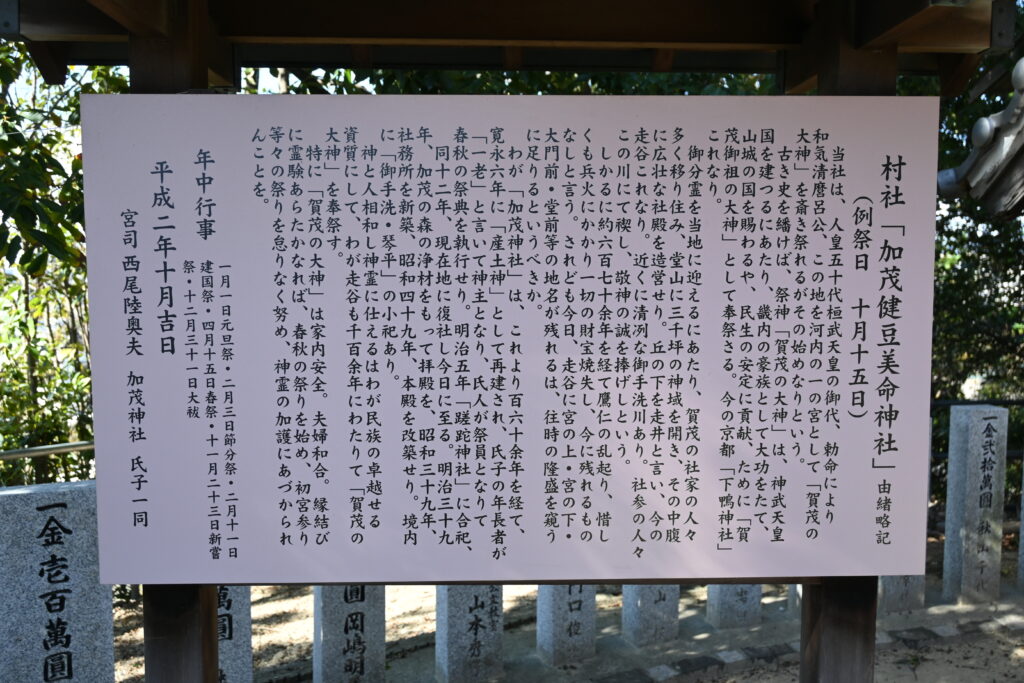 村社「加茂健豆美命神社」由緒略記
(例祭日　十月十五日)
当社は、人皇五十代桓武天皇の御代、勅命により
和気清麿呂公、この地を河内の一の宮として「賀茂の
大神」を斎き祭れるがその始めなりという。
古き史を繙けば、祭神「賀茂の大神」は、神武天皇
国を建つるにあたり、畿内の豪族として大功をたて、
山城の国を賜わるや、民生の安定に貢献、ために「賀
茂御祖の大神」として奉祭さる。今の京都「下鴨神社」
これなり。
御分霊を当地に迎えるにあたり、賀茂の社家の人々
多く移り住み、堂山に三千坪の神域を開き、その中腹
に広壮な社殿を造営せり。丘の下を走井と言い、今の
走谷これなり。近くに清冽な御手洗川あり。社参の人々
この川にて禊し、敬神の誠を捧げしという。
しかるに約六百七十余年を経て鷹仁の乱起り、惜し
くも兵火にかかり一切の財宝焼失し、今に残れるもの
なしと言う。されども今日、走谷に宮の上・宮の下・
大門前・堂前等の地名が残れるは、往時の隆盛を窺う
に足りるというべきか。
わが「加茂神社」は、これより百六十余年を経て、
寛永六年に「産土神」として再建され、氏子の年長者が
「一老」と言いて神主となり、氏人が祭員となりて
春秋の祭典を執行せり。明治五年「蹉跎神社」に合祀、
同十二年、現在地に復社し今日に至る。明治三十九
年、加茂の森の浄材をもって拝殿を、昭和三十九年、
社務所を新築、昭和四十九年、本殿を改築せり。境内
に「御手洗・琴平」の小祀あり。
神と人相和し神霊に仕えるはわが民族の卓越せる
資質にして、わが走谷も千百余年にわたりて「賀茂の
大神」を奉祭す。
特に「賀茂の大神」は家内安全。夫婦和合。縁結び
に霊験あらたかなれば、春秋の祭りを始め、初宮参り
等々の祭りを怠りなく努め、神霊の加護にあづかられ
んことを。
年中行事　一月一日元旦祭・二月三日節分祭・二月十一日
建国祭・四月十五日春祭・十一月二十三日新嘗
祭・十二月三十一日大祓
平成二年十月吉日
宮司 西尾陸奥夫　加茂神社　氏子一同
一金弐拾萬圓
一金壱百萬圓
萬圓
圓 岡嶋明
山本
門口俊
山